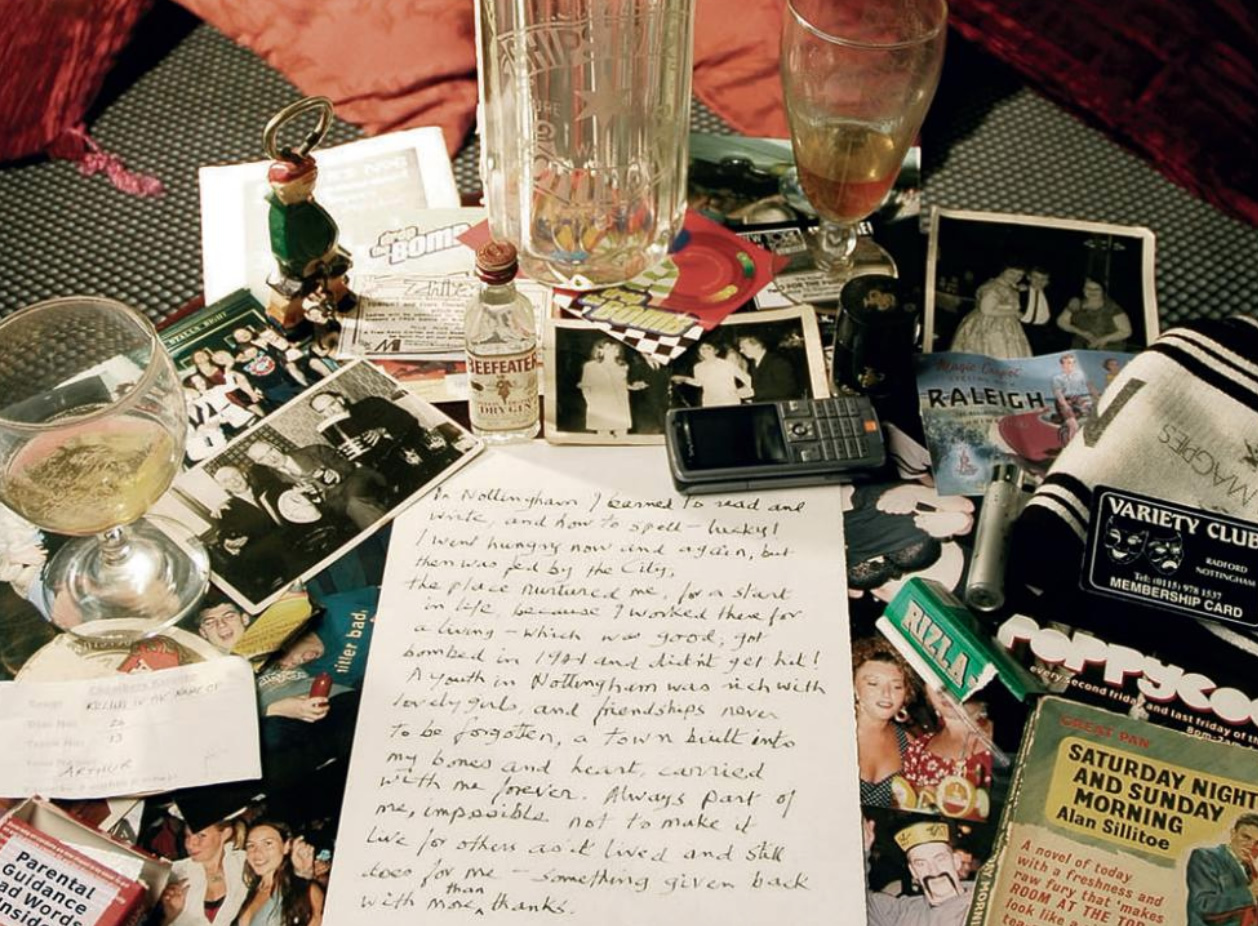 SHIPS
BOMB
BEEFEATER
DRY GIN
BOMB
Magic Carpet
RALEIGH
MAGPIES
VARIETY CLUB
RADFORD
NOTTINGHAM
Tel: (0115) 978 1537
MEMBERSHIP CARD
In Nottingham I learned to read and
write, and how to spell – lucky!
I went hungry now and again, but
then was fed by the City,
the place nurtured me, for a start
in life, because I worked there for
a living – which was good; got
bombed in 1941 and didn't get hit!
A youth in Nottingham was rich with
lovely girls, and friendships never
to be forgotten, a town built into
my bones and heart, carried
with me forever. Always part of
me, impossible not to make it
live for others as it lived and still
does for me – something given back
with more than thanks.
RIZLA
POPPYCO
every second friday and last friday of th
GREAT PAN
SATURDAY NIGHT
AND SUNDAY
MORNING
Alan Sillitoe
A novel of today
with a freshness and
raw fury that 'makes
ROOM AT THE TOP
look like a
ARTHUR
Parental
Guidance
ad Words
Inside